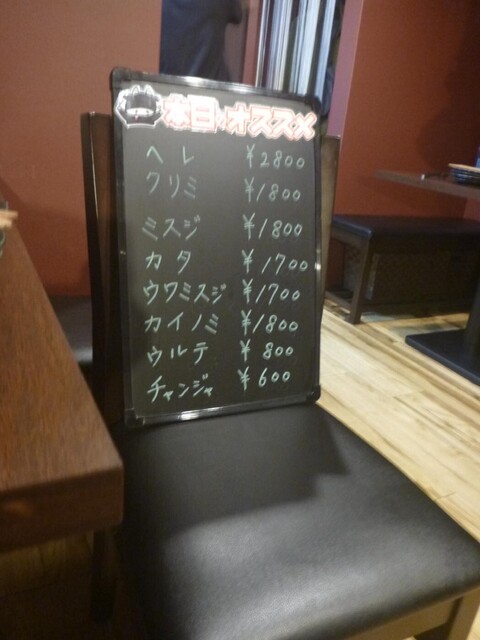 本日のオススメ
ヘレ ¥2800
クリミ ¥1800
ミスジ ¥1800
カタ ¥1700
ウワミスジ ¥1700
カイノミ ¥1800
ウルテ ¥800
チャンジャ ¥600